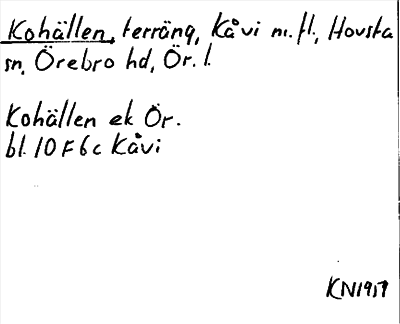 Kohällen, terräng, Kåvi m. fl., Hovsta
sn, Örebro hd, Ör. l.
Kohällen ek Ör.
bl. 10 F 6 c Kåvi